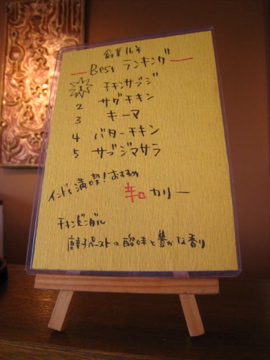 創業16年
Best ランキング
チキンサブジ
2 サグチキン
3 キーマ
4 バターチキン
5 サブジマサラ
インドを満喫!おすすめ
辛口カリー
チキンビンダル
の酸味と豊かな香り